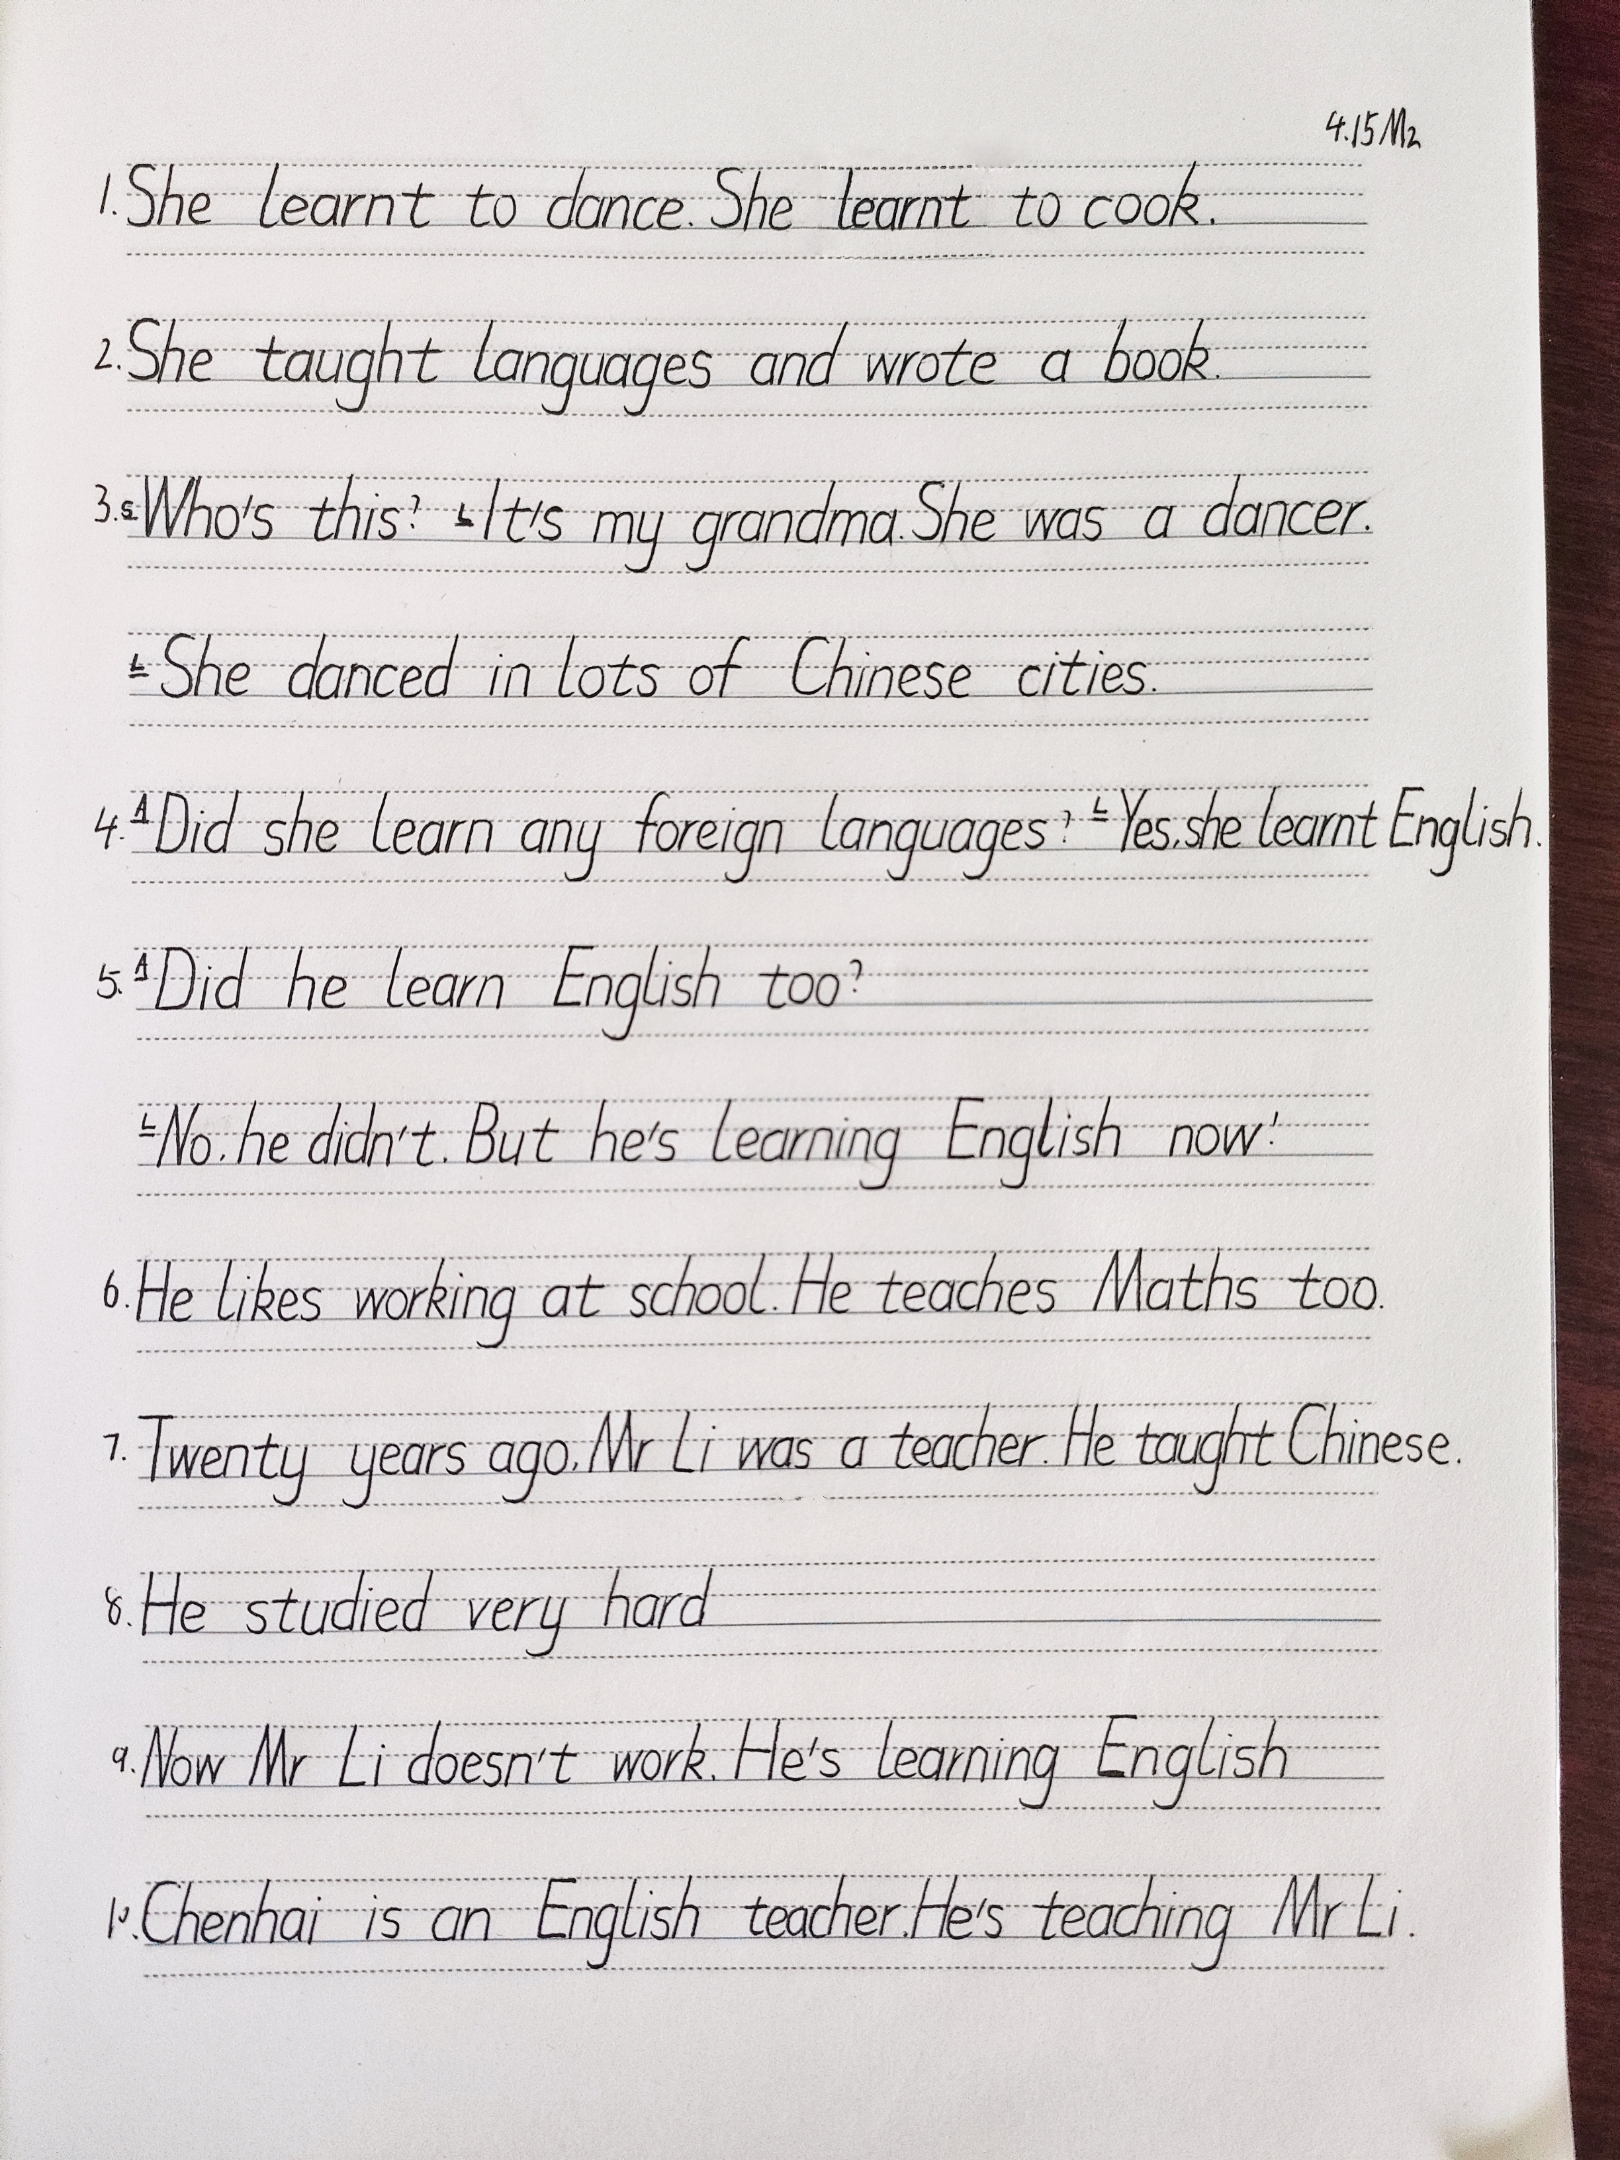 4.15 M2
1. She learnt to dance. She learnt to cook.
2. She taught languages and wrote a book.
3. S Who's this? L It's my grandma. She was a dancer.
L She danced in lots of Chinese cities.
4. A Did she learn any foreign languages? L Yes, she learnt English.
5. A Did he learn English too?
L No, he didn't. But he's learning English now!
6. He likes working at school. He teaches Maths too.
7. Twenty years ago, Mr Li was a teacher. He taught Chinese.
8. He studied very hard
9. Now Mr Li doesn't work. He's learning English
10. Chenhai is an English teacher. He's teaching Mr Li.